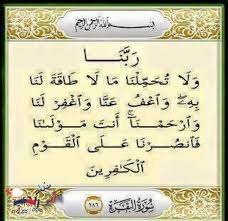 بسم الله الرحمن الرحيم
رَبَّنَا
وَلَا تُحَمِّلْنَا مَا لَا طَاقَةَ لَنَا
بِهِۦ ۖ وَٱعْفُ عَنَّا وَٱغْفِرْ لَنَا
وَٱرْحَمْنَآ ۚ أَنتَ مَوْلَىٰنَا
فَٱنصُرْنَا عَلَى ٱلْقَوْمِ
ٱلْكَـٰفِرِينَ
سُورَةُ البَقَرَة ٢٨٦